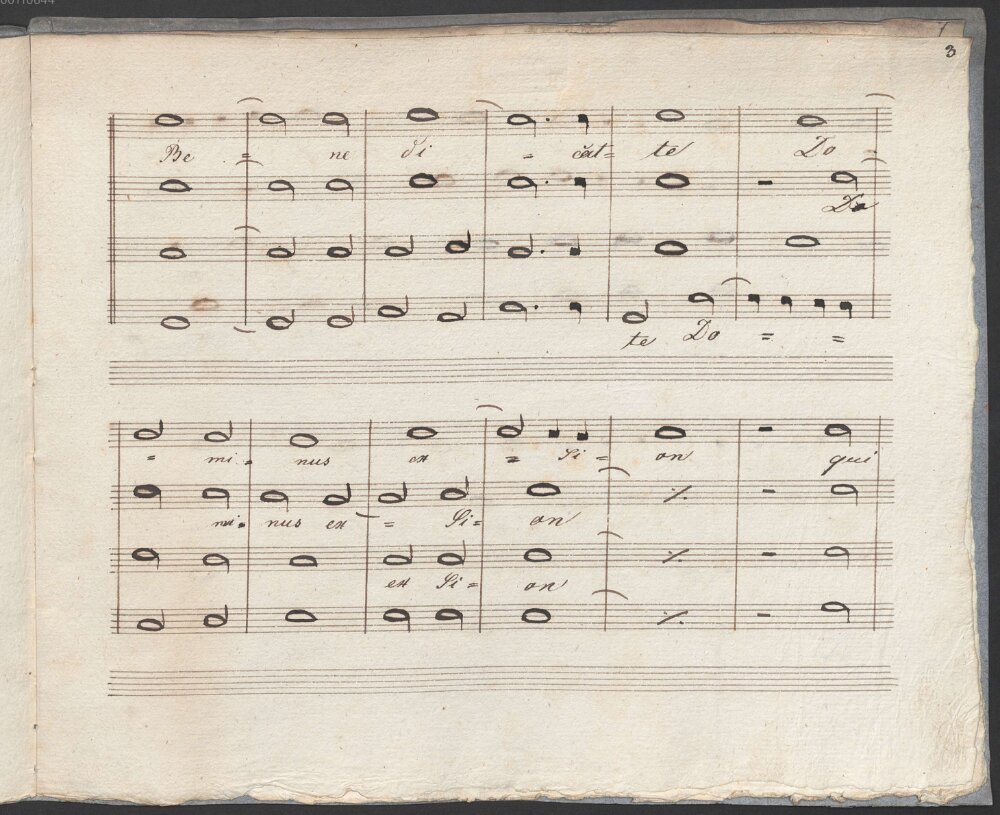 3
Be = ne di = cat= te Do
Do
te Do = =
= mi = nus ex = Si = on qui
mi= nus ex = Si= on
ex Si= on